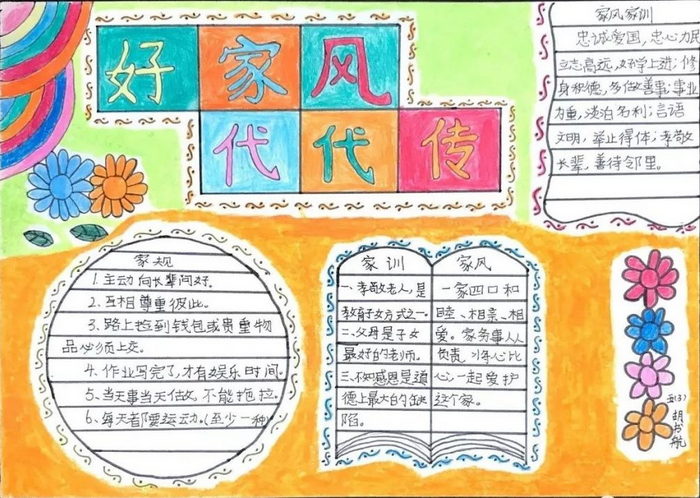 好家风
代代传
家风家训
忠诚爱国,忠心为民
立志高远,好学上进;修
身积德,多做善事;事业
为重,淡泊名利;言语
文明,举止得体;孝敬
长辈,善待邻里。
家规
1.主动向长辈问好。
2.互相尊重彼此。
3.路上捡到钱包或贵重物
品必须上交。
4.作业写完了,才有娱乐时间。
5.当天事当天做,不能拖拉。
6.每天都要运动。(至少一种)
家训
一、孝敬老人,是
教育子女方式之一
二、父母是子女
最好的老师。
三、不知感恩是道
德上最大的缺
陷。
家风
一家四口和
睦、相亲、相
爱。家务事人人
负责,少年心比
心一起爱护
这个家。
五(3)
胡书航